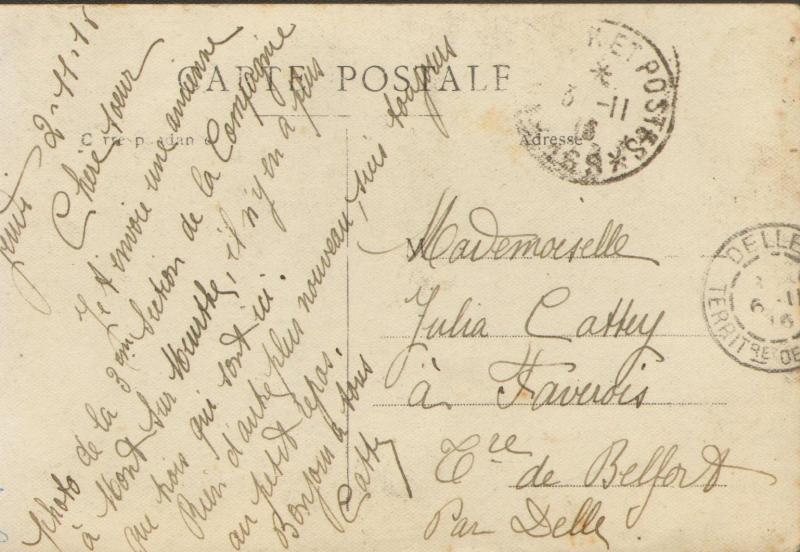 CARTE POSTALE
Correspondance
Adresse
ET POSTES
11
jeudi 2-11-16
Chère sœur
Je t'envoie une ancienne
photo de la 3ème Section de la Compagnie
à Mont sur Meurthe, il n'y en a plus
que trois qui sont ici.
Rien d'autre plus nouveau, suis toujours
au petit repos.
Bonjour à tous
Cattey
M
Mademoiselle
Julia Cattey
à Faverois
Tre de Belfort
Par Delle
DELLE
6 -11
16
TERRITRE DE